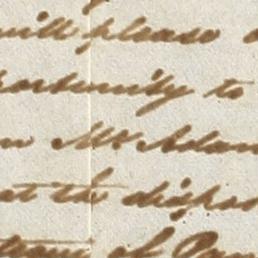 will please
portunity to
Mr Adam
at the dispos
of